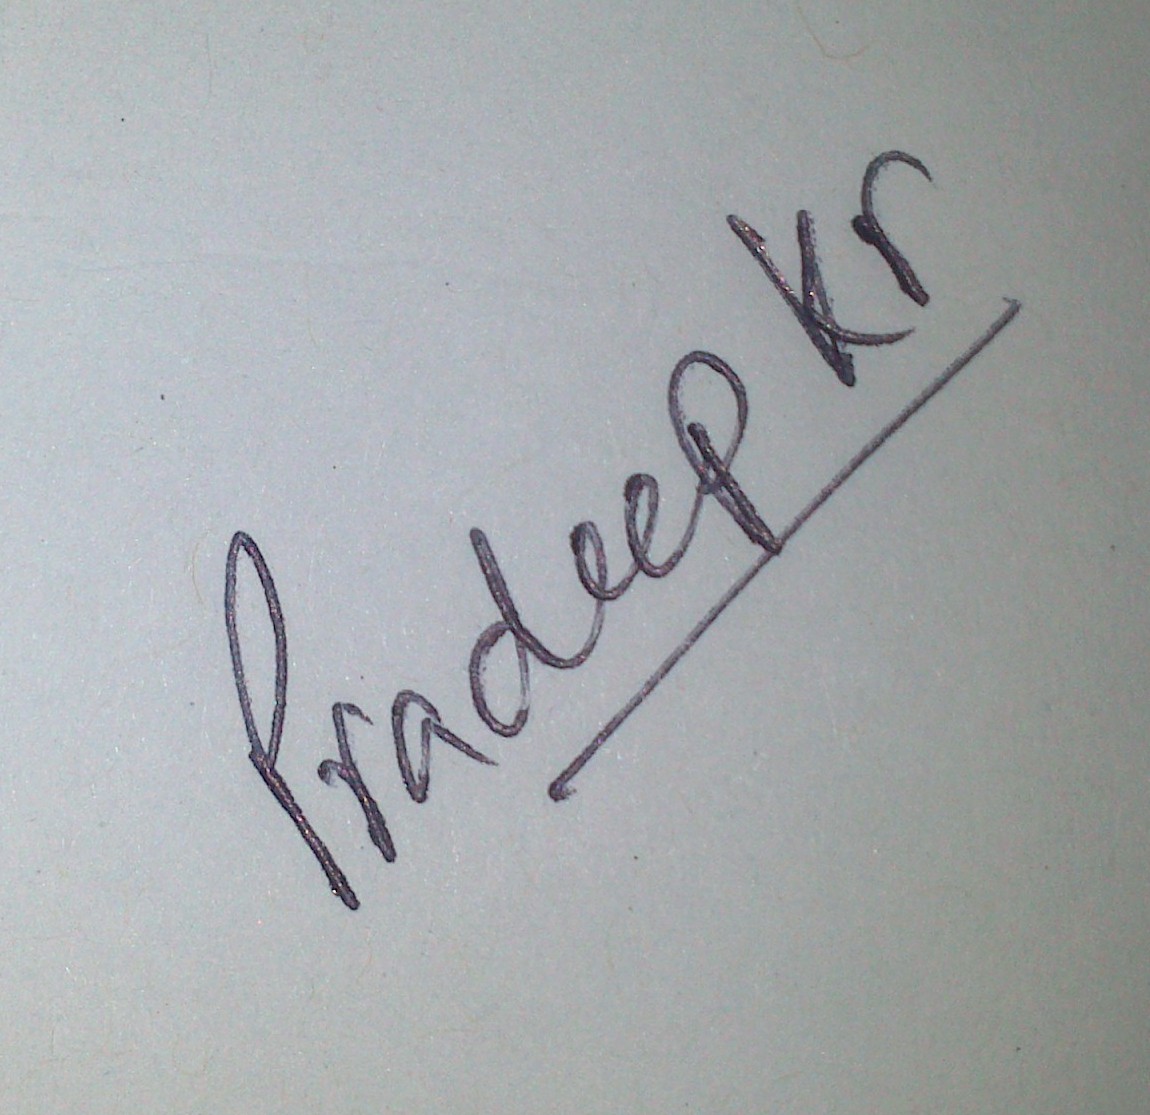 Pradeep Kr